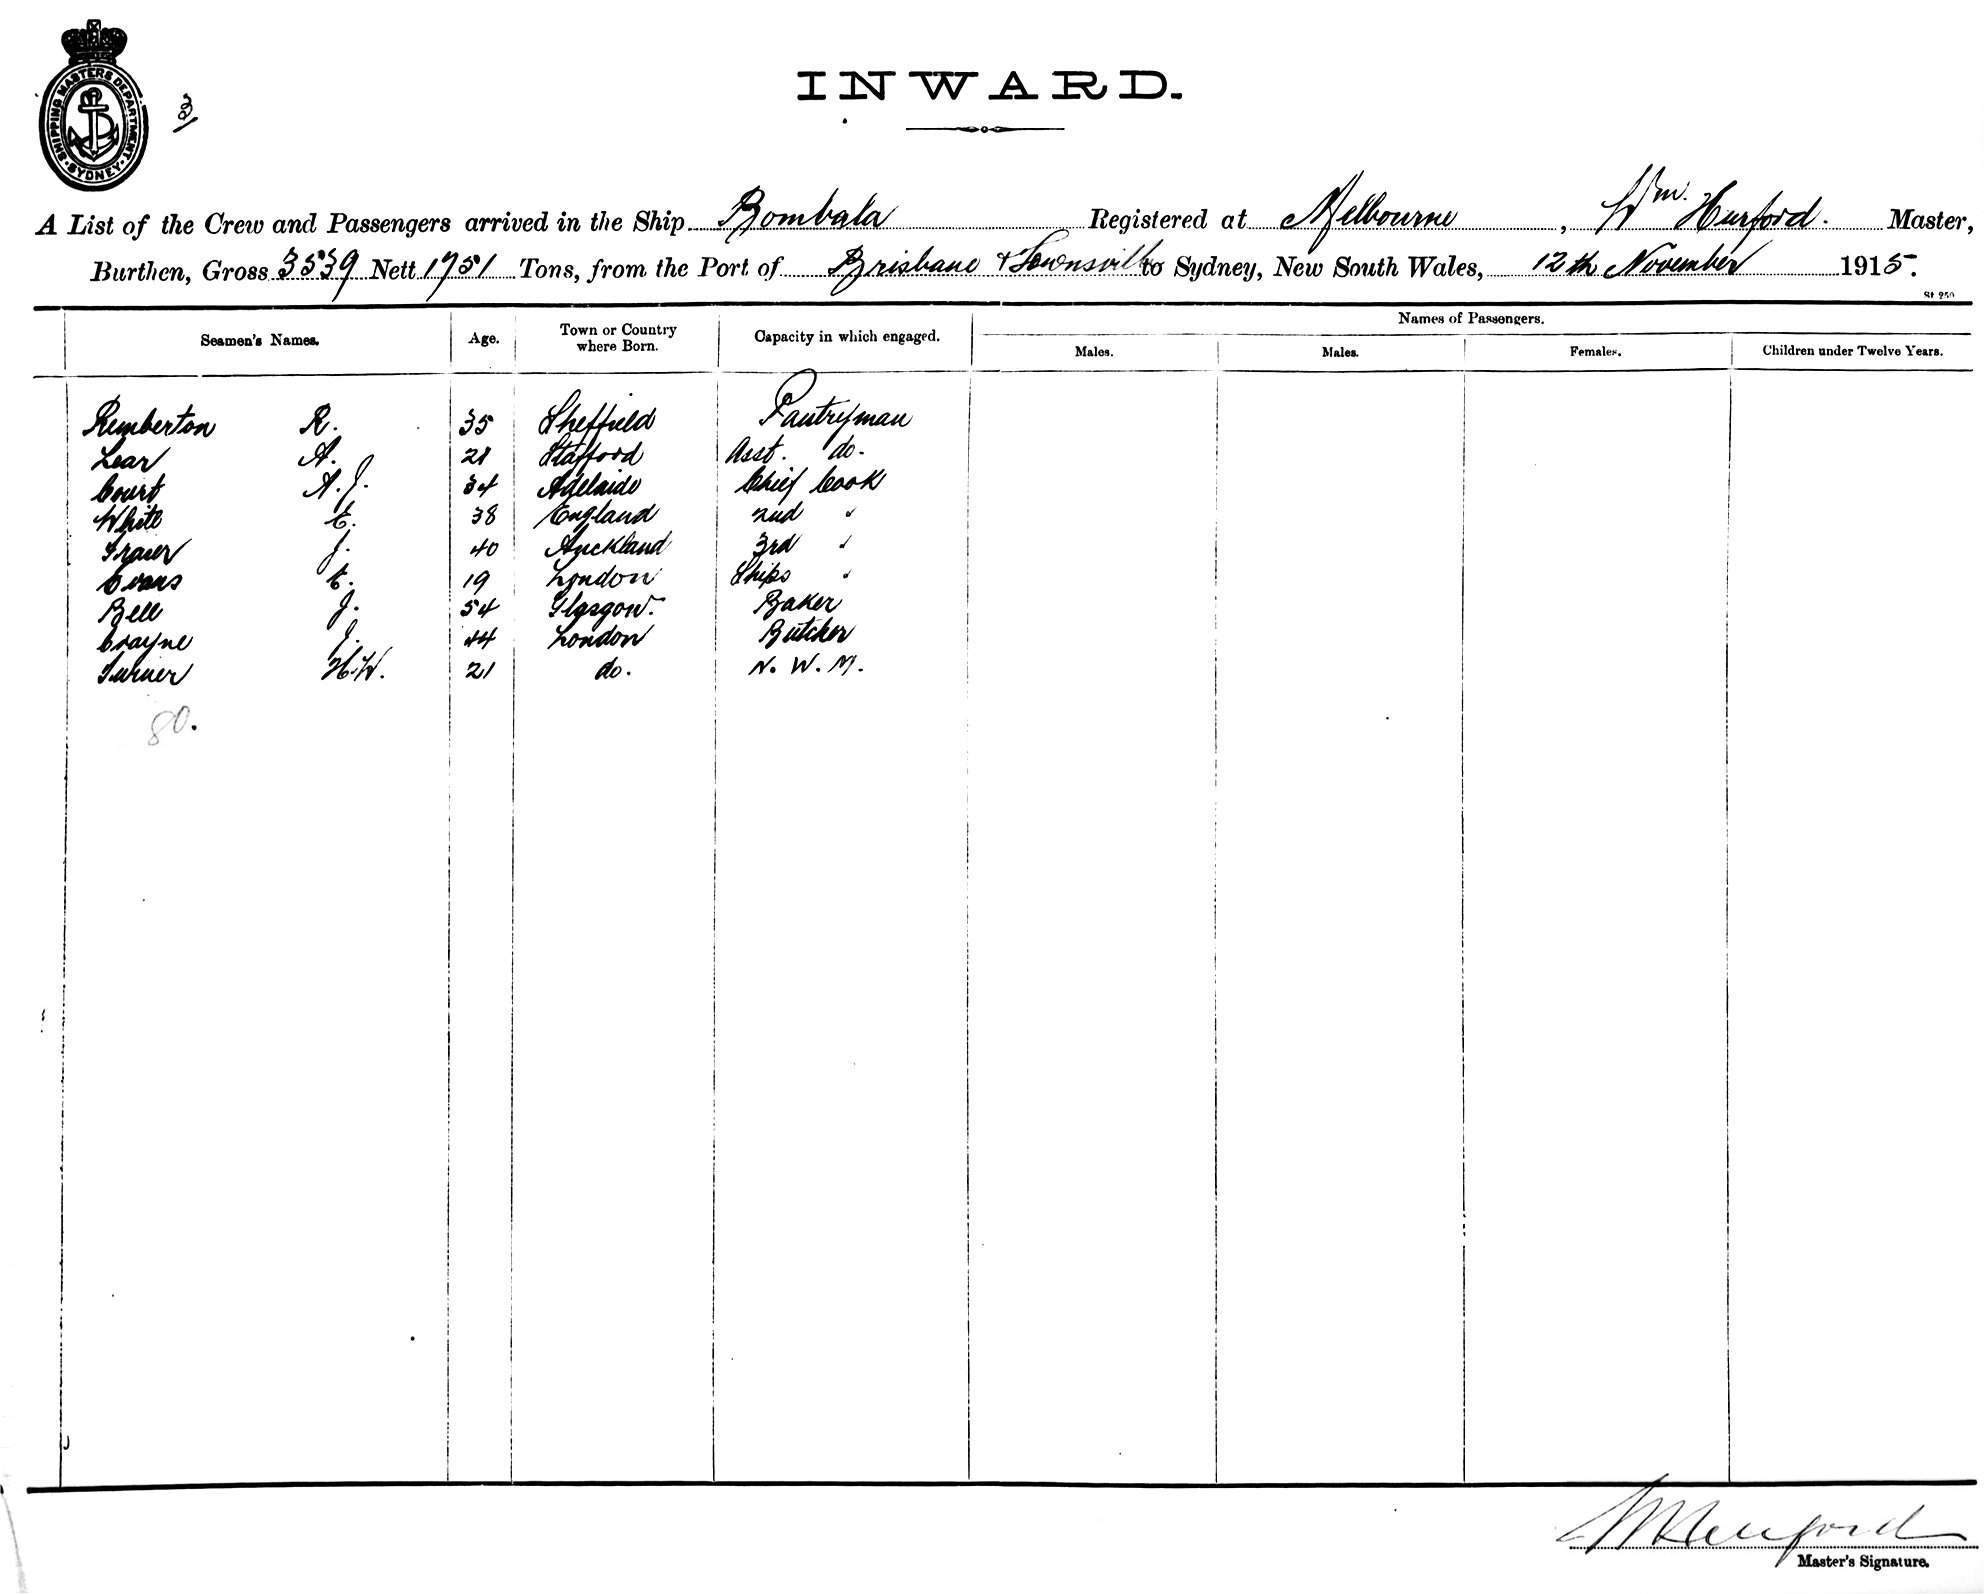 SHIPPING MASTERS DEPARTMENT
SYDNEY
3
INWARD.
A List of the Crew and Passengers arrived in the Ship Bombala Registered at Melbourne, Wm. Hurford. Master,
Burthen, Gross 3539 Nett 1751 Tons, from the Port of Brisbane & Townsville to Sydney, New South Wales, 12th November 1915.
St 250
Seamen's Names. Age. Town or Country where Born. Capacity in which engaged. Names of Passengers.
Males. Males. Females. Children under Twelve Years.
Pemberton R. 35 Sheffield Pantryman
Lear A. 21 Stafford Asst. do.
Court A. J. 34 Adelaide Chief Cook
White E. 38 England 2nd "
Fraser J. 40 Auckland 3rd "
Evans E. 19 London Ships "
Bell J. 54 Glasgow. Baker
Crayne J. 44 London Butcher
Turner H.W. 21 do. N. W. M.
80.
Hurford
Master's Signature.